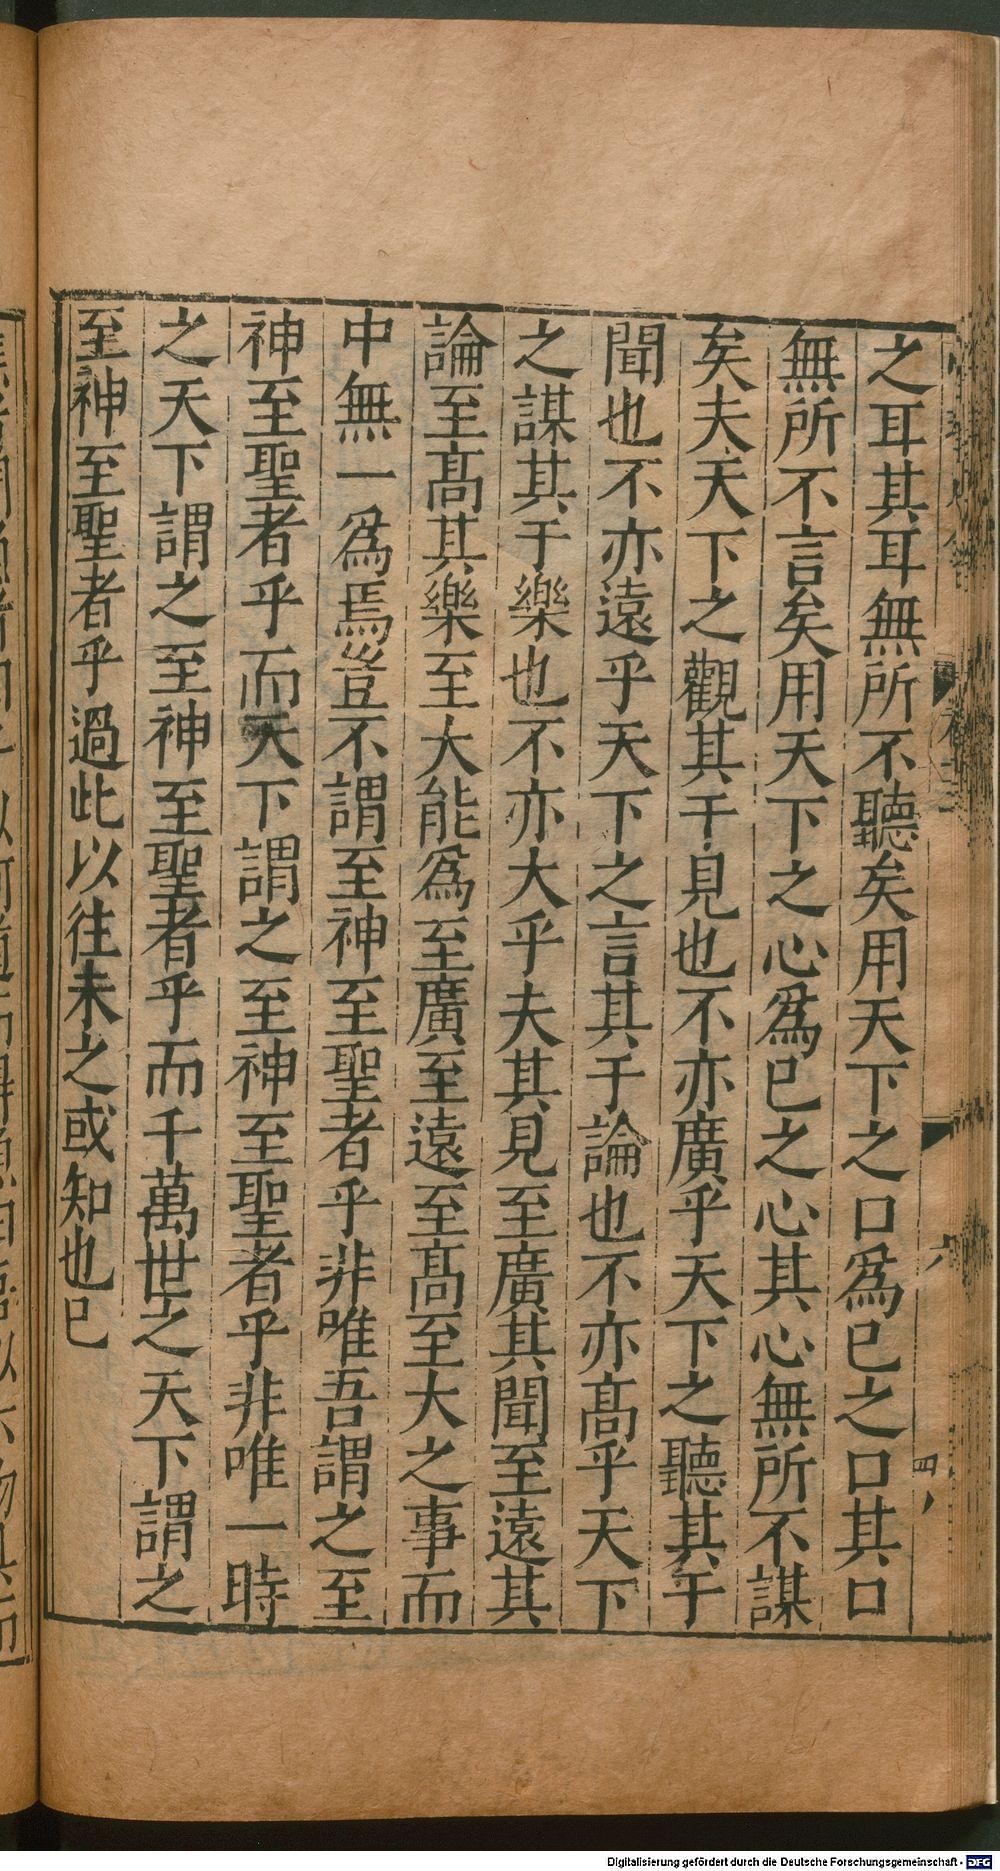 之耳其耳無所不聽矣用天下之口爲已之口其口
無所不言矣用天下之心爲已之心其心無所不謀
矣夫天下之觀其于見也不亦廣乎天下之聽其于
聞也不亦遠乎天下之言其于論也不亦髙乎天下
之謀其于樂也不亦大乎夫其見至廣其聞至遠其
論至髙其樂至大能爲至廣至遠至髙至大之事而
中無一爲焉豈不謂至神至聖者乎非唯吾謂之至
神至聖者乎而天下謂之至神至聖者乎非唯一時
之天下謂之至神至聖者乎而千萬世之天下謂之
至神至聖者乎過此以往未之或知也已
Digitalisierung gefördert durch die Deutsche Forschungsgemeinschaft - DFG